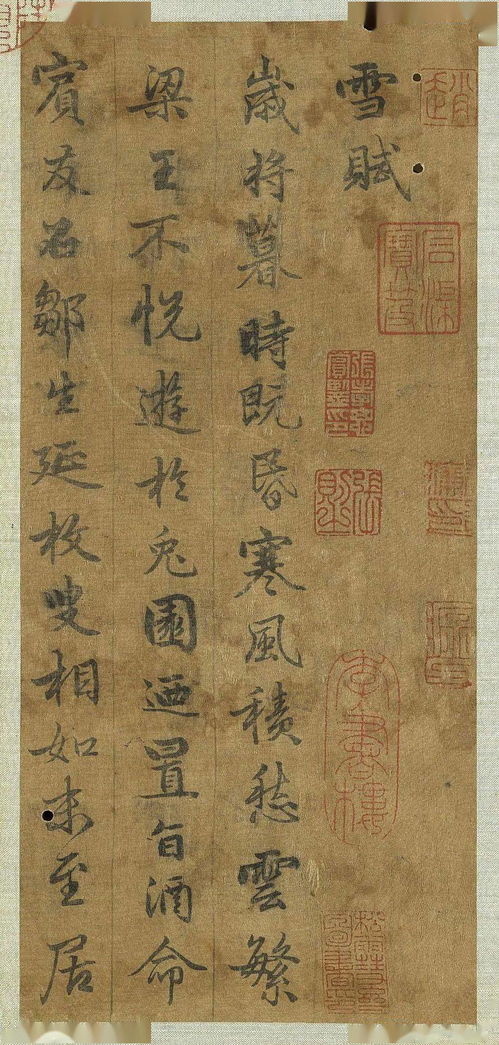 雪賦
歲將暮時既昏寒風積愁雲繁
梁王不悅遊於兔園迺置旨酒命
賓友召鄒生延枚叟相如未至居